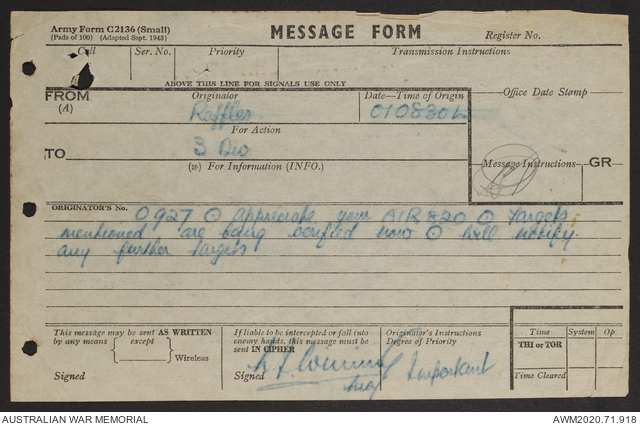 Army Form C2136 (Small)
(Pads of 100) (Adapted Sept. 1943)
MESSAGE FORM
Register No.
Call Ser. No. Priority Transmission Instructions
ABOVE THIS LINE FOR SIGNALS USE ONLY
FROM Originator Date—Time of Origin Office Date Stamp
(A) Raffles 010830L
For Action
TO 3 Div
(w) For Information (INFO.) Message Instructions GR
ORIGINATOR'S No. O927 ⊙ Appreciate your AIR 820 ⊙ Targets
mentioned are being verified now ⊙ will notify
any further targets
This message may be sent AS WRITTEN
by any means except
Wireless
Signed
If liable to be intercepted or fall into
enemy hands, this message must be
sent IN CIPHER
Signed
Maj
Originator's Instructions
Degree of Priority
Important
Time System Op
THI or TOR
Time Cleared
AUSTRALIAN WAR MEMORIAL AWM2020.71.918